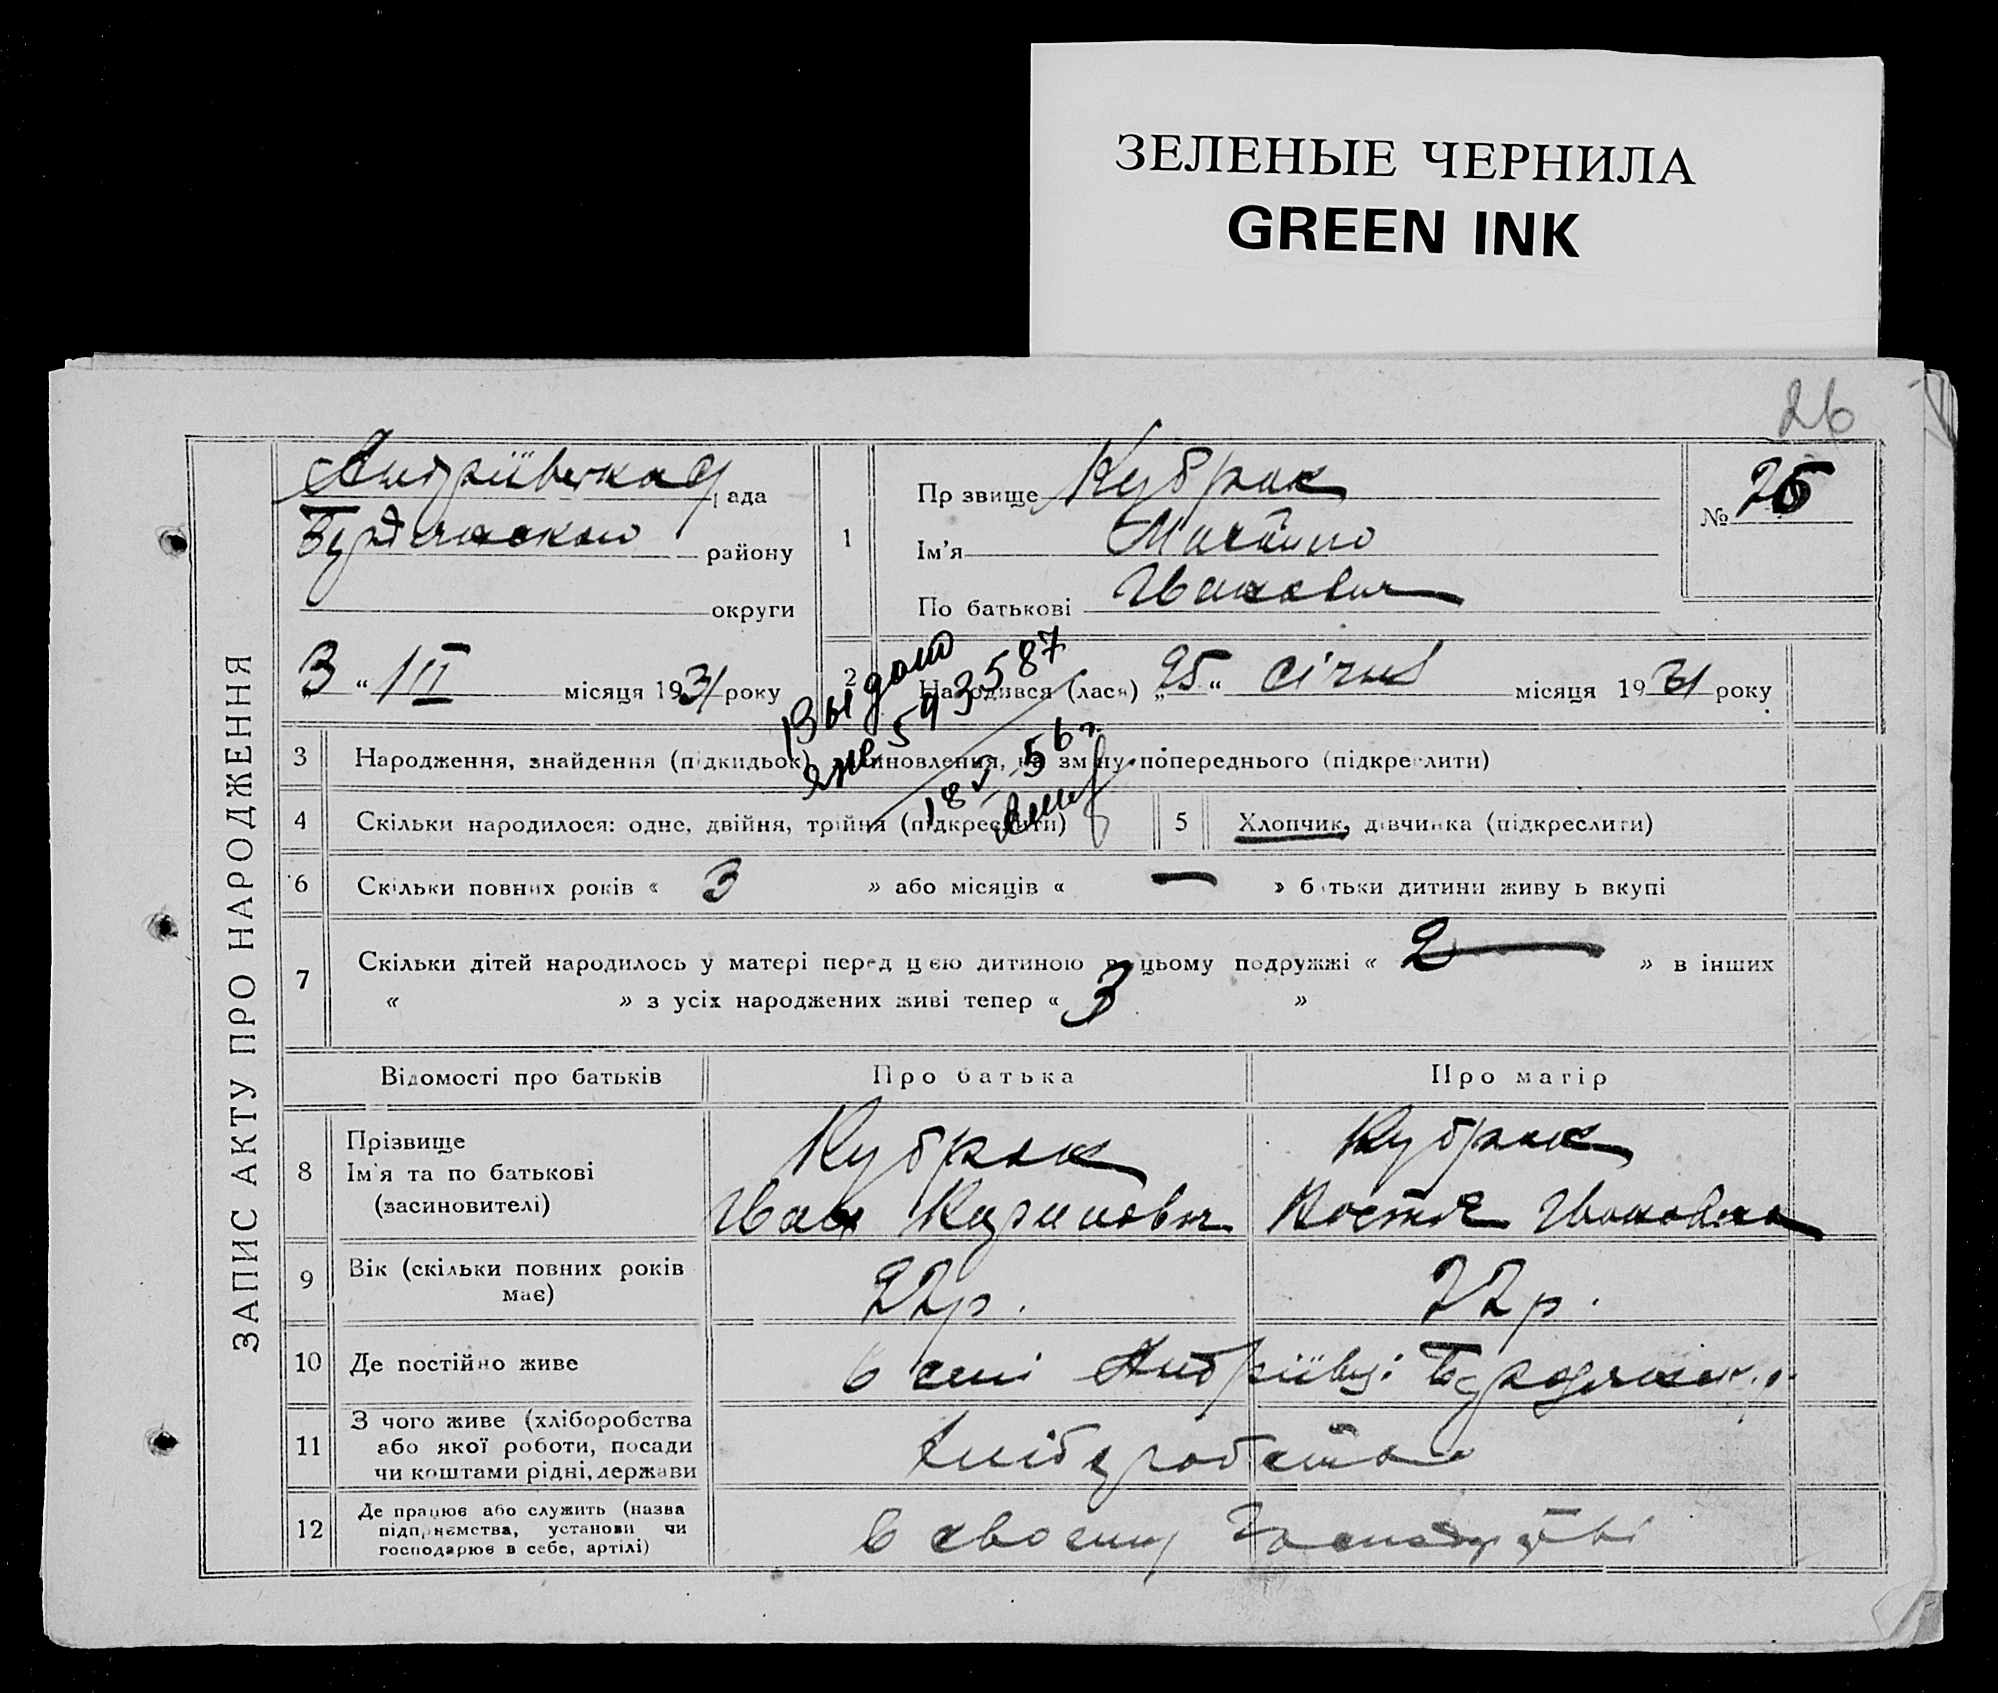 ЗЕЛЕНЫЕ ЧЕРНИЛА
GREEN INK
26
ЗАПИС АКТУ ПРО НАРОДЖЕННЯ
Андріївська рада
району
округи
3 “ III місяця 1931 року
1
Прізвище Кубрак
Ім'я
По батькові Іванович
№ 26
2 Народився (лася) „25“ січня місяця 1931 року
Выдано
593587
56 г.
3 Народження, знайдення (підкидьок), засиновлення, на зміну попереднього (підкреслити)
4 Скільки народилося: одне, двійня, трійня (підкреслити)
5 Хлопчик, дівчинка (підкреслити)
6 Скільки повних років « 3 » або місяців « — » батьки дитини живуть вкупі
7 Скільки дітей народилось у матері перед цією дитиною в цьому подружжі « 2 — » в інших
« » з усіх народжених живі тепер « 3 »
Відомості про батьків
Про батька
Про матір
8 Прізвище
Ім'я та по батькові
(засиновителі)
Кубрак
Іван
Кубрак
Івановна
9 Вік (скільки повних років
має)
22 р.
22 р.
10 Де постійно живе
в селі Андріївці
11 З чого живе (хліборобства
або якої роботи, посади
чи коштами рідні, держави
12 Де працює або служить (назва
підприємства, установи чи
господарює в себе, артілі)
в своему